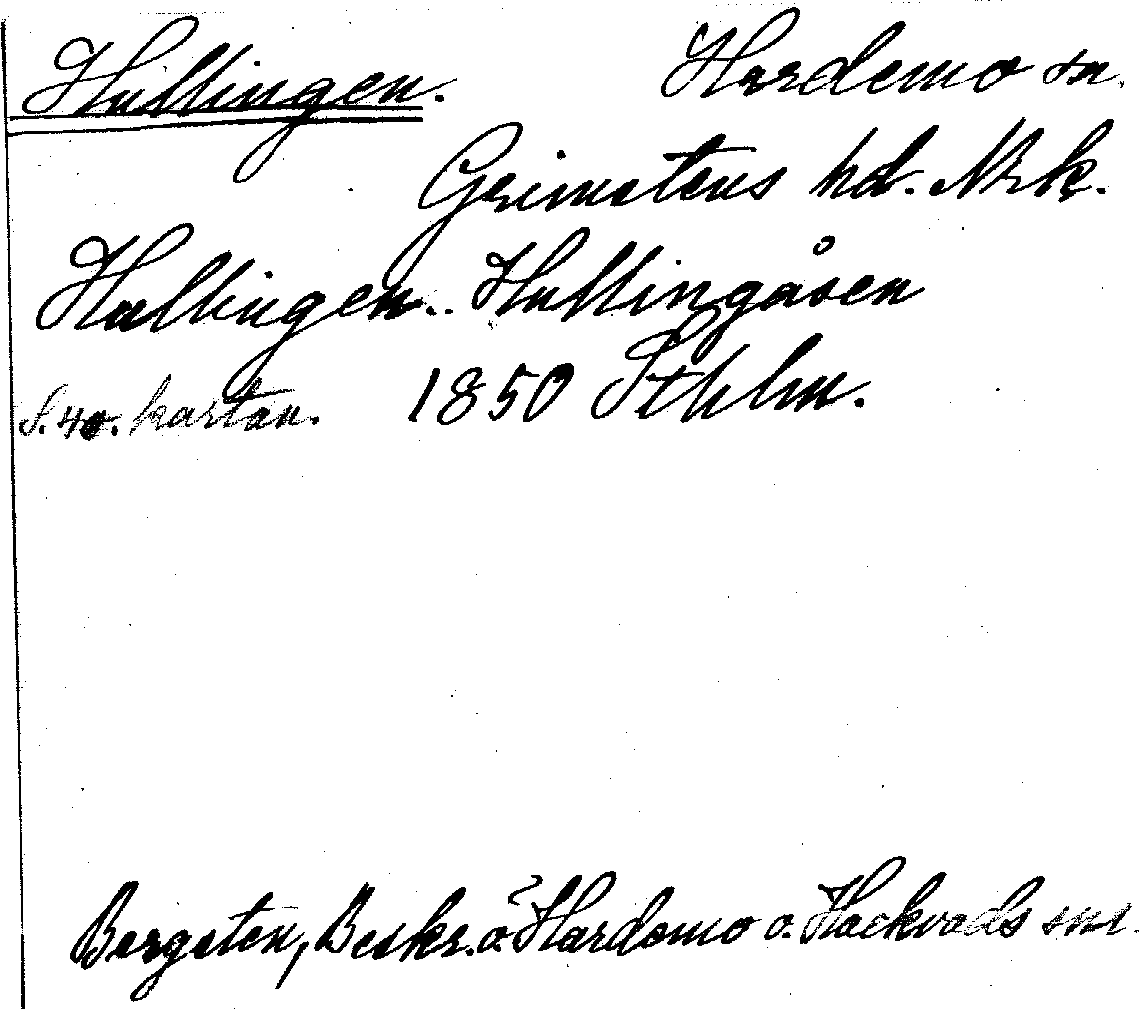 Hullingen. Hardemo sn.
Grimstens hd. Nrk.
Hallingen. Hullingåsen
S. 40. kartan. 1850 Sthlm.
Bergsten, Beskr. ö. Hardemo o. Hackvads snr.